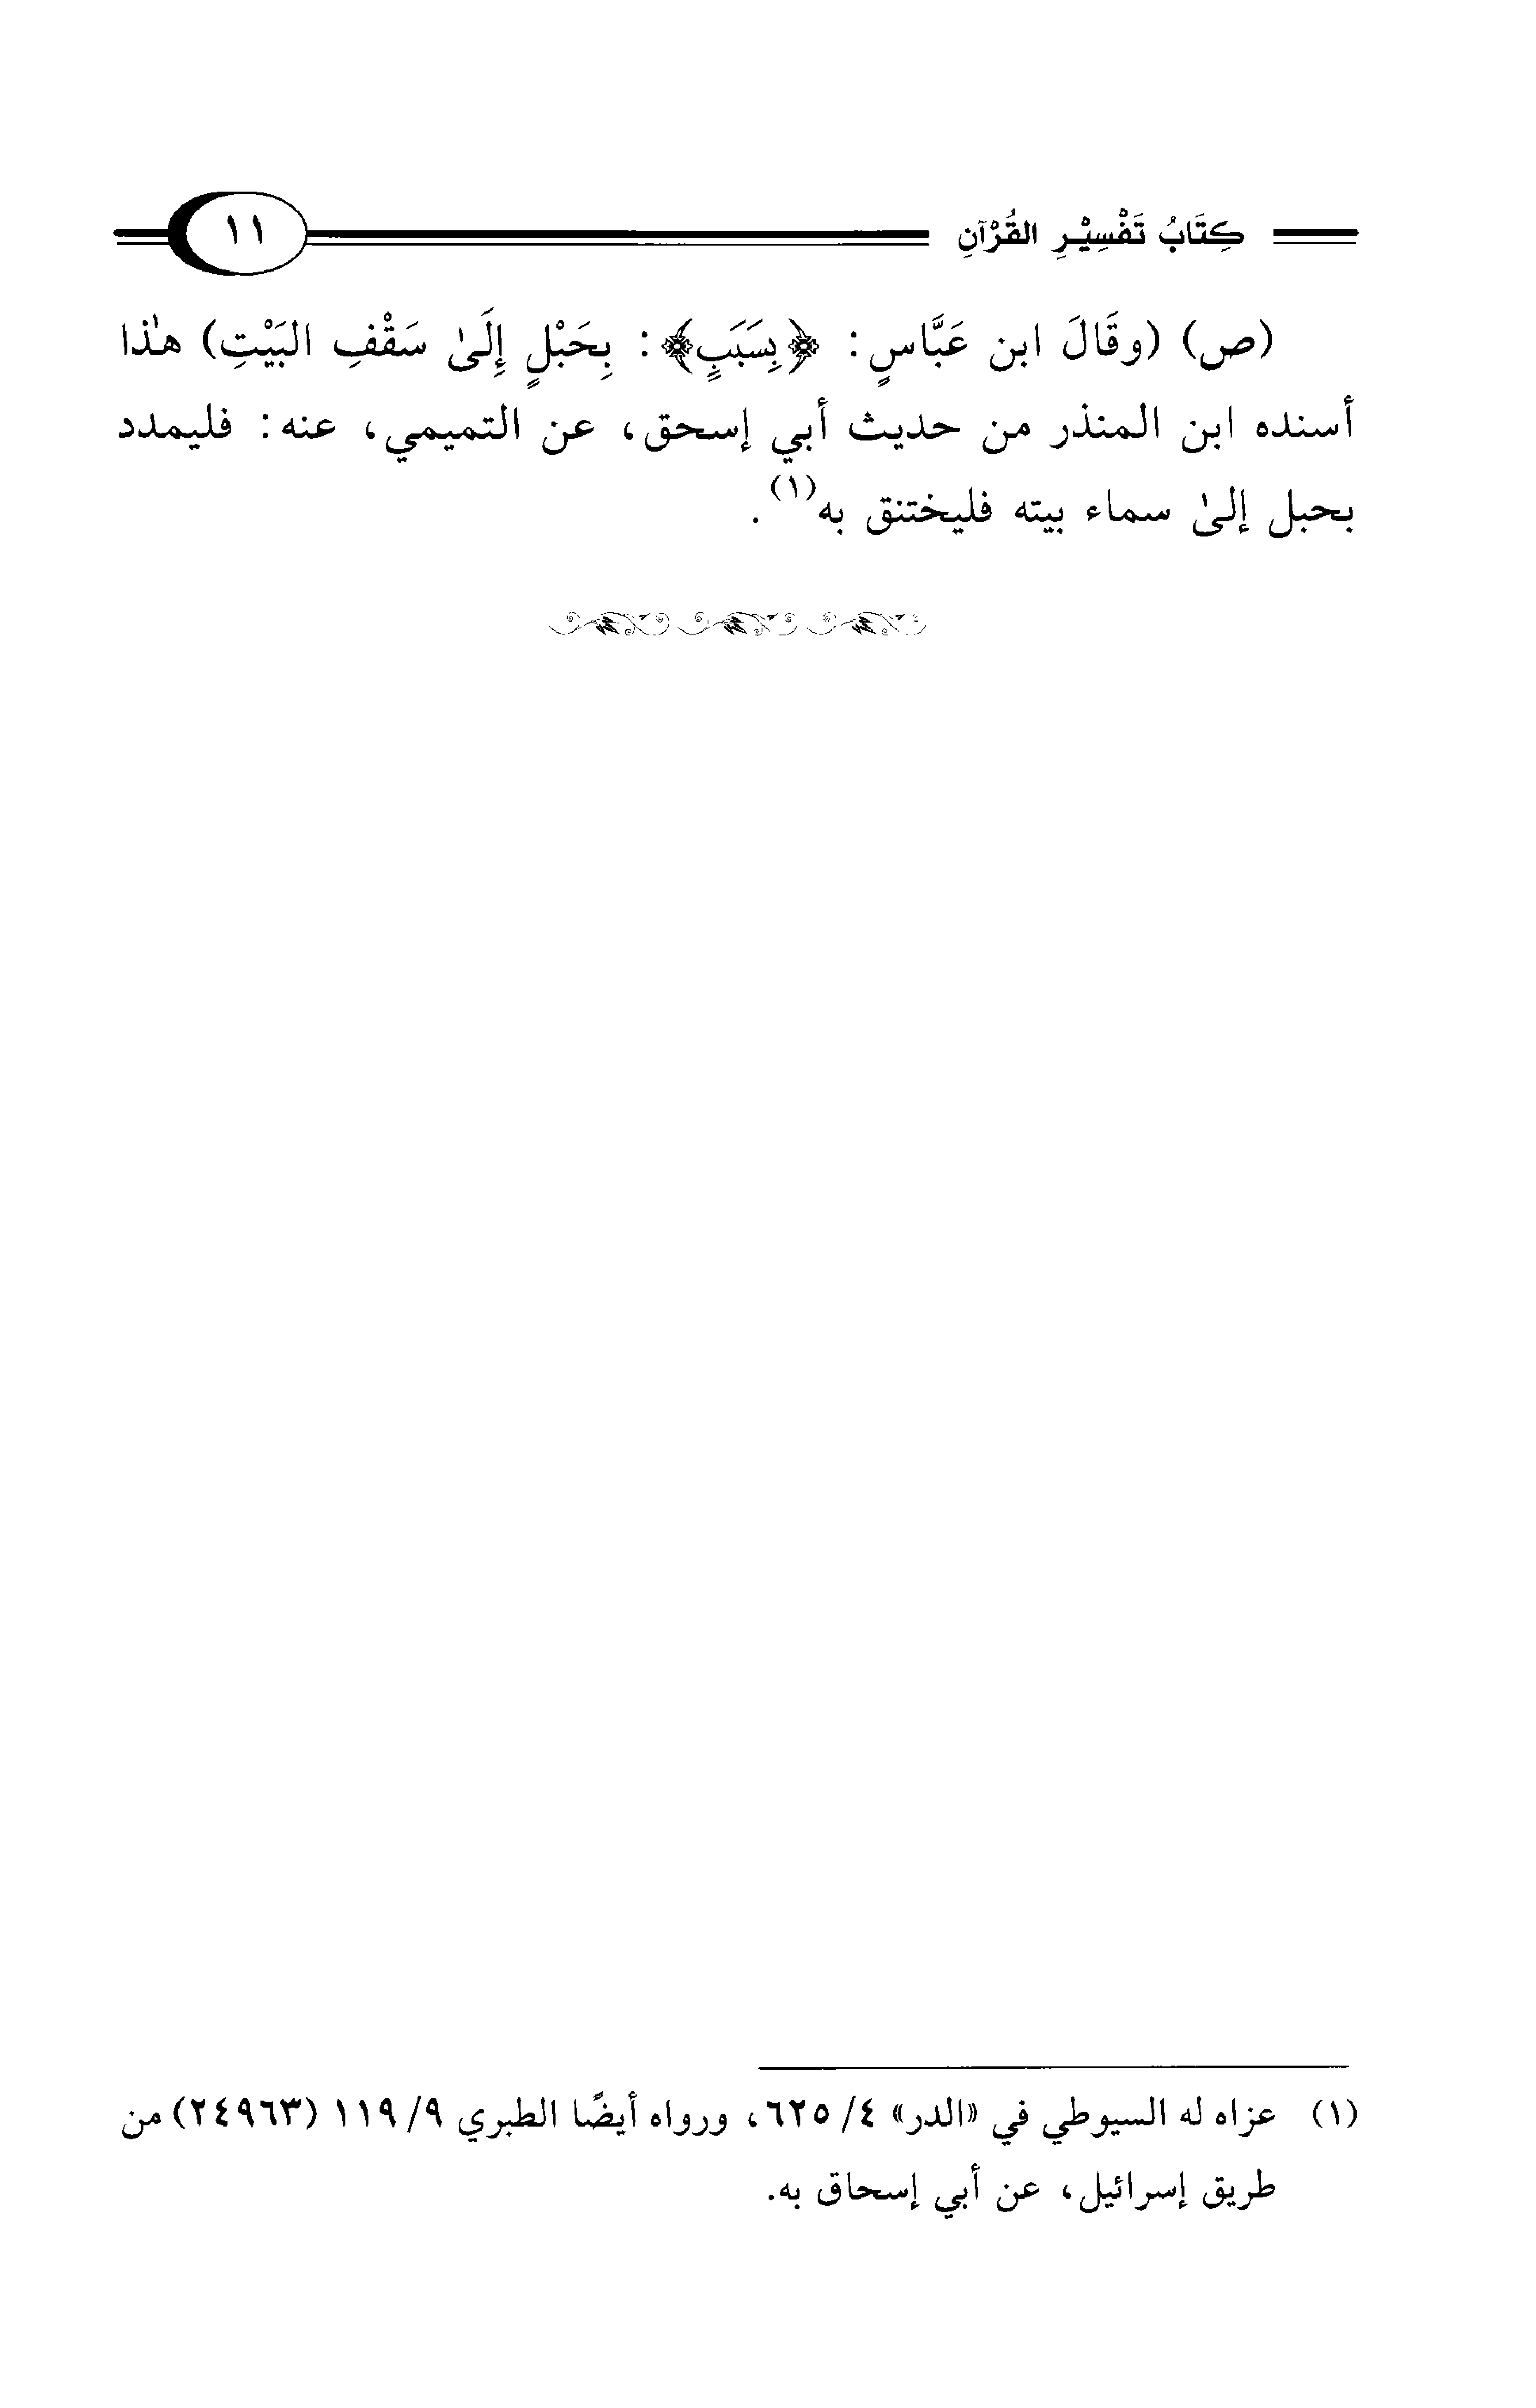 كِتَابُ تَفْسِيْرِ القُرْآنِ ١١
(ص) (وقَالَ ابن عَبَّاسٍ: ﴿بِسَبَبٍ﴾: بِحَبْلٍ إِلَىٰ سَقْفِ البَيْتِ) هذا
أسنده ابن المنذر من حديث أبي إسحق، عن التميمي، عنه: فليمدد
بحبل إلىٰ سماء بيته فليختنق به(١).
(١) عزاه له السيوطي في «الدر» ٤/ ٦٢٥، ورواه أيضًا الطبري ٩/ ١١٩ (٢٤٩٦٣) من
طريق إسرائيل، عن أبي إسحاق به.